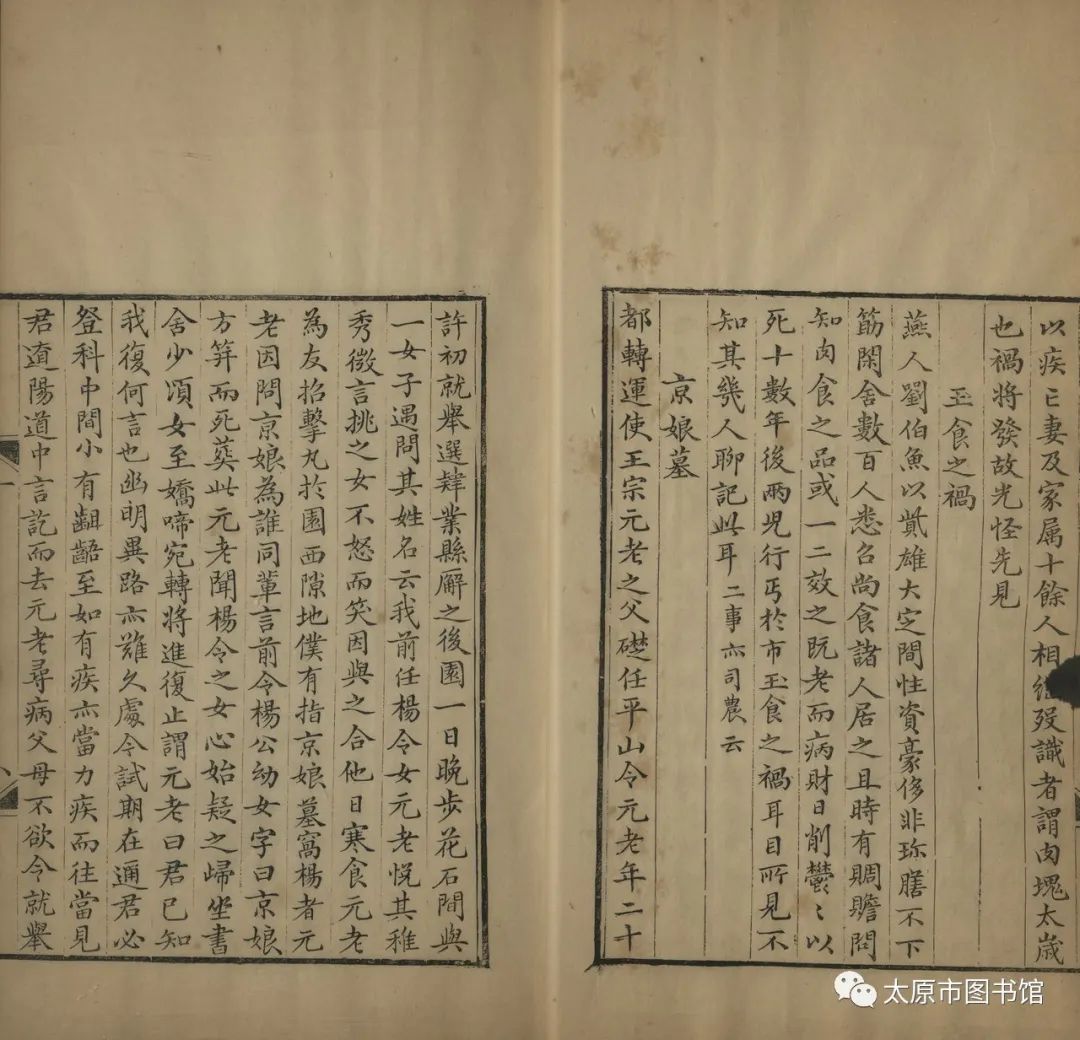 以疾亡妻及家属十餘人相繼歿識者謂肉塊太歲
也禍將發故光怪先見
玉食之禍
燕人劉伯魚以貲雄大定間性資豪侈非珎膳不下
筯閑舍數百人悉召尚食諸人居之且時有賙贍問
知肉食之品或一二效之既老而病財日削鬱〻以
死十數年後兩児行丐於市玉食之禍耳目所見不
知其幾人聊記此耳二事亦司農云
京娘墓
都轉運使王宗元老之父礎任平山令元老年二十
許初就舉選肄業縣廨之後園一日晚步花石間與
一女子遇問其姓名云我前任楊令女元老悅其稚
秀微言挑之女不怒而笑因與之合他日寒食元老
為友招擊丸於園西隙地僕有指京娘墓窩楊者元
老因問京娘為誰同輩言前令楊公幼女字曰京娘
方笄而死葬此元老聞楊令之女心始疑之歸坐書
舍少頃女至嬌啼宛轉將進復止謂元老曰君已知
我復何言也幽明異路亦難久處今試期在邇君必
登科中間小有齟齬至如有疾亦當力疾而往當見
君遼陽道中言訖而去元老尋病父母不欲令就舉
太原市图书馆